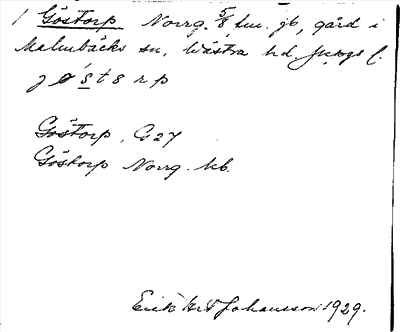 1 Göstorp Norrg. 5/8 tm. jb, gård i
Malmbäcks sn, Västra hd. Jkpgs l.
jøstərp
Göstorp, G 27
Göstorp Norrg. kb.
Erik Johansson 1929.